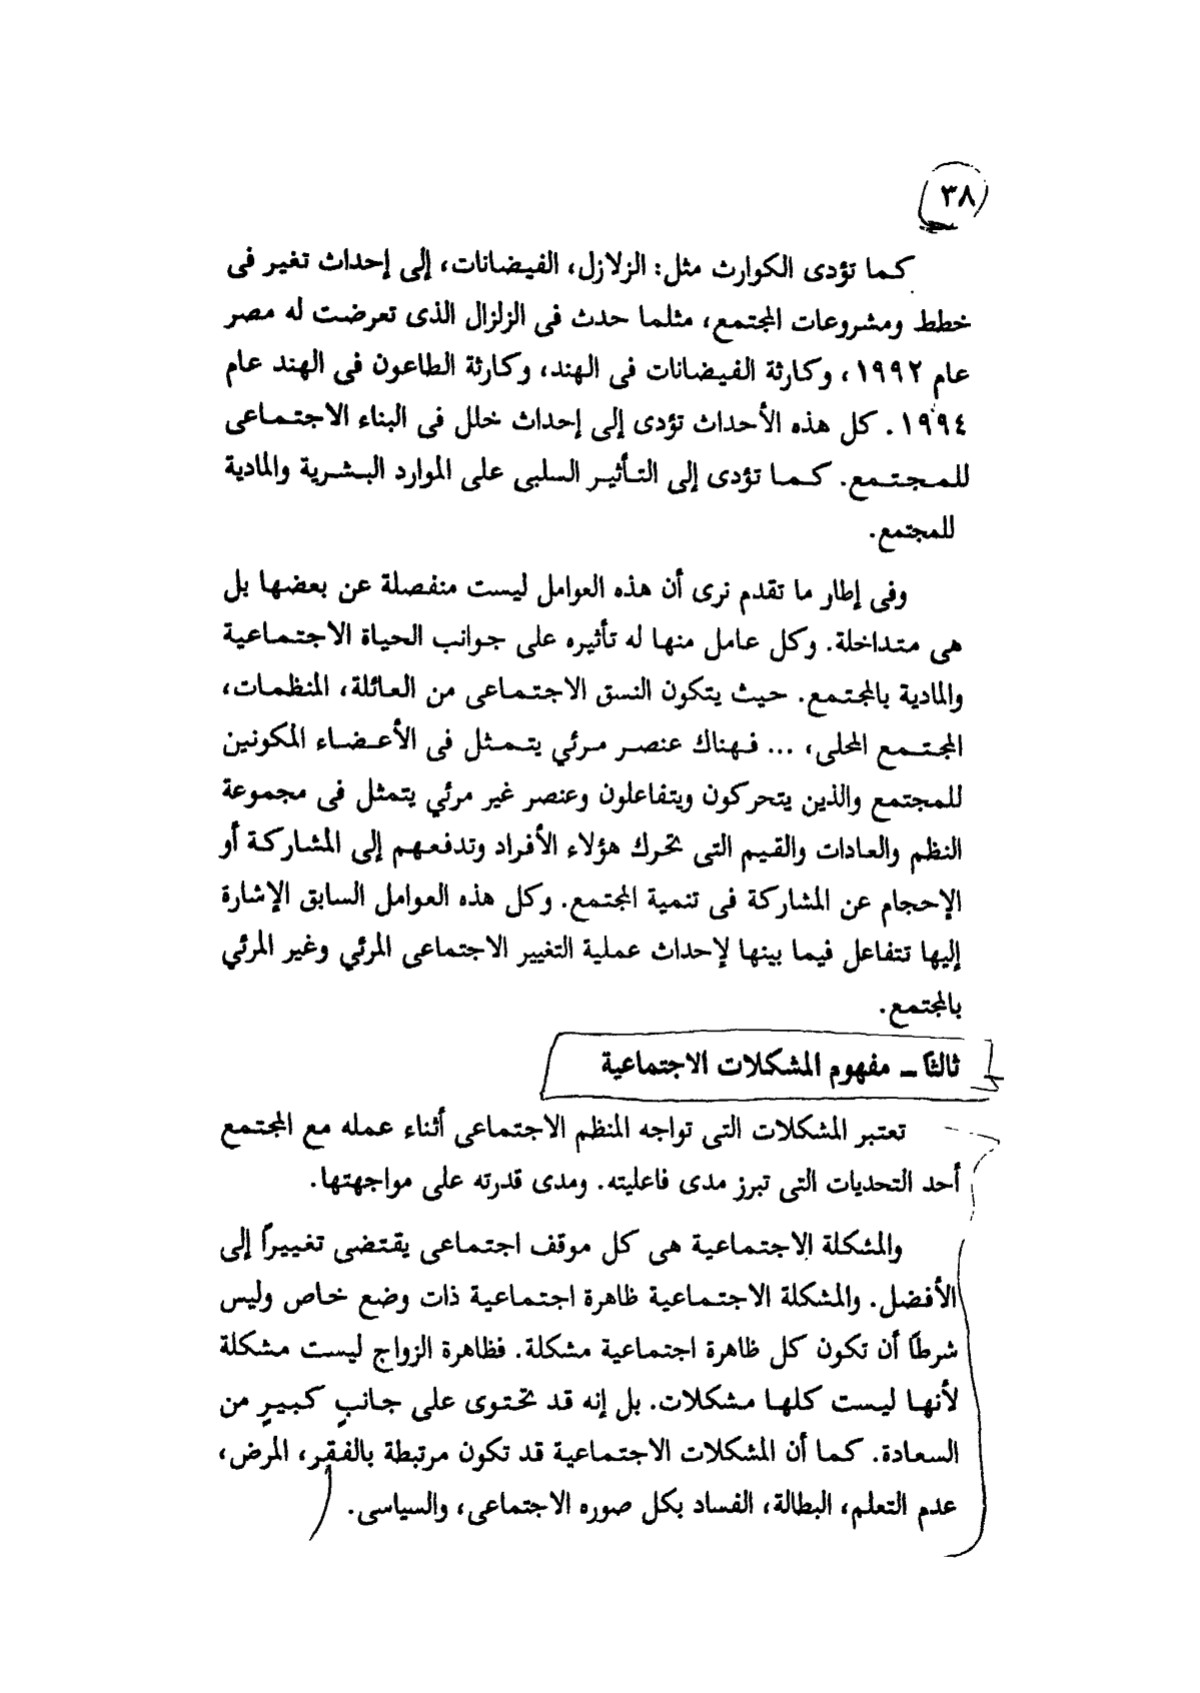 ٣٨
كما تؤدى الكوارث مثل: الزلازل، الفيضانات، إلى إحداث تغير فى
خطط ومشروعات المجتمع، مثلما حدث فى الزلزال الذى تعرضت له مصر
عام ١٩٩٢، وكارثة الفيضانات فى الهند، وكارثة الطاعون فى الهند عام
١٩٩٤. كل هذه الأحداث تؤدى إلى إحداث خلل فى البناء الاجتماعى
للمجتمع. كما تؤدى إلى التأثير السلبى على الموارد البشرية والمادية
للمجتمع.
وفى إطار ما تقدم نرى أن هذه العوامل ليست منفصلة عن بعضها بل
هى متداخلة. وكل عامل منها له تأثيره على جوانب الحياة الاجتماعية
والمادية بالمجتمع. حيث يتكون النسق الاجتماعى من العائلة، المنظمات،
المجتمع المحلى، ... فهناك عنصر مرئي يتمثل فى الأعضاء المكونين
للمجتمع والذين يتحركون ويتفاعلون وعنصر غير مرئي يتمثل فى مجموعة
النظم والعادات والقيم التى تحرك هؤلاء الأفراد وتدفعهم إلى المشاركة أو
الإحجام عن المشاركة فى تنمية المجتمع. وكل هذه العوامل السابق الإشارة
إليها تتفاعل فيما بينها لإحداث عملية التغيير الاجتماعى المرئي وغير المرئي
بالمجتمع.
ثالثًا ـ مفهوم المشكلات الاجتماعية
تعتبر المشكلات التى تواجه المنظم الاجتماعى أثناء عمله مع المجتمع
أحد التحديات التى تبرز مدى فاعليته. ومدى قدرته على مواجهتها.
والمشكلة الاجتماعية هى كل موقف اجتماعى يقتضى تغييراً إلى
الأفضل. والمشكلة الاجتماعية ظاهرة اجتماعية ذات وضع خاص وليس
شرطًا أن تكون كل ظاهرة اجتماعية مشكلة. فظاهرة الزواج ليست مشكلة
لأنها ليست كلها مشكلات. بل إنه قد تحتوى على جانبٍ كبيرٍ من
السعادة. كما أن المشكلات الاجتماعية قد تكون مرتبطة بالفقر، المرض،
عدم التعلم، البطالة، الفساد بكل صوره الاجتماعى، والسياسى.